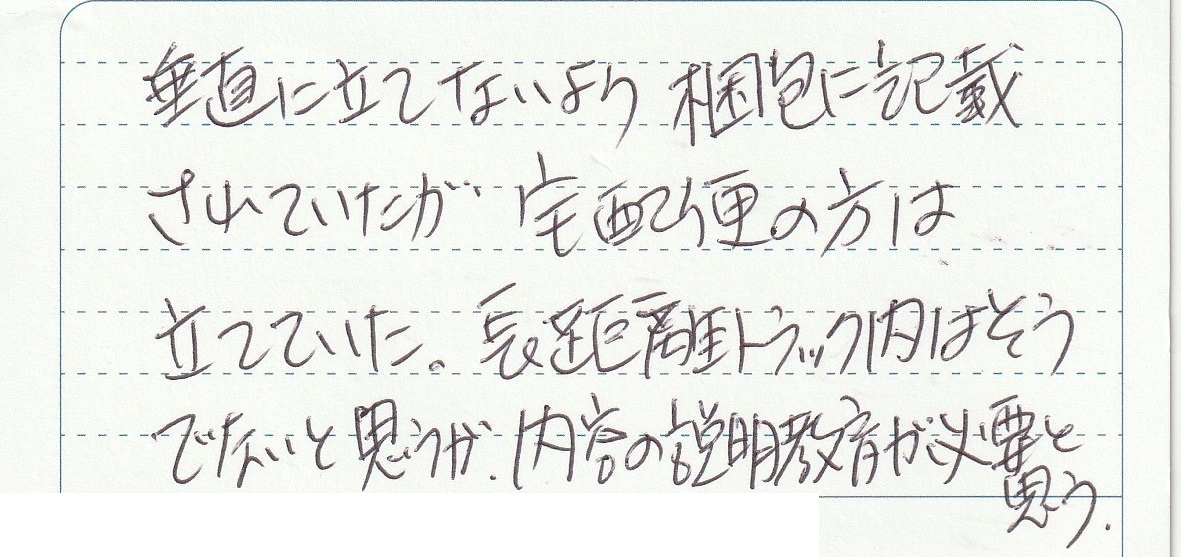 垂直に立てないよう梱包に記載
されていたが 宅配便の方は
立てていた。長距離トラック内はそう
でないと思うが、内容の説明教育が必要と
思う.